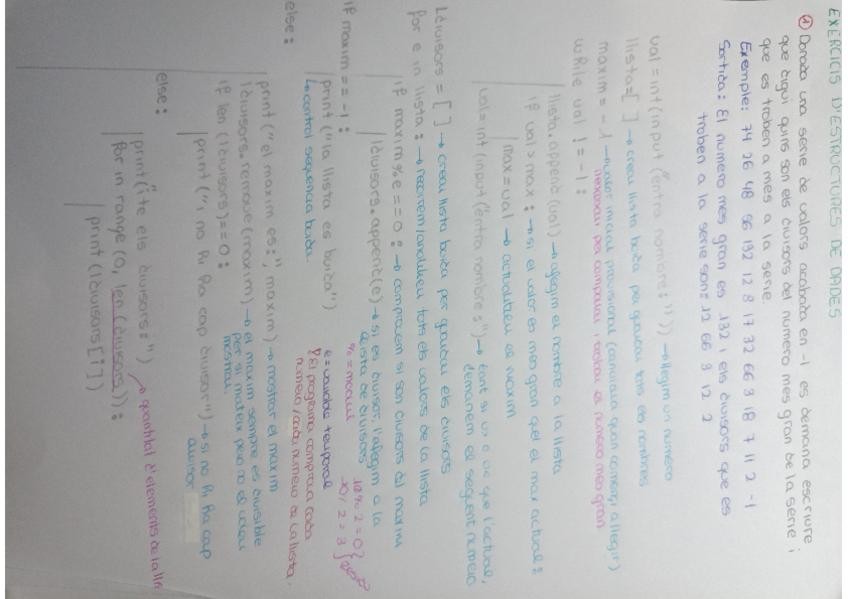 EXERCICIS D'ESTRUCTURES DE DADES
① Donada una serie de valors acabada en -1 es demana escriure
que digui quins son els divisors del numero mes gran de la serie i
que es troben a mes a la serie.
Exemple: 74 26 48 56 132 12 8 17 32 66 3 18 7 11 2 -1
Sortida: El numero mes gran es 132 i els divisors que es
troben a la serie son: 12 66 3 12 2
val = int(input("entra nombre:")) → llegim un numero
llista = [ ] → creeu llista buida per guardar tots els nombres
maxim = -1 → valor inicial provisional (canviara quan comenci a llegir)
necessari per comparar i trobar el numero mes gran
while val != -1:
llista.append(val) → afegim el nombre a la llista
if val > max: → si el valor es mes gran que el max actual:
max = val → actualitzeu el maxim
val = int(input("entra nombre:")) → tant si ho es que l'actual,
demanem el seguent numero
ldivisors = [ ] → creeu llista buida per guardar els divisors
for e in llista: → recorrem/analitzeu tots els valors de la llista
if maxim % e == 0: → comprovem si son divisors del maxim
ldivisors.append(e) → si es divisor, l'afegim a la
llista de divisors
% = modul
12 % 2 = 0
e = variable temporal
El programa comprova cada
numero/cada numero de la llista.
if maxim == -1:
print("la llista es buida")
↳ control sequencia buida
else:
print("el maxim es:", maxim) → mostrar el maxim
ldivisors.remove(maxim) → el maxim sempre es divisible
per si mateix pero no el voleu
mostrar.
if len(ldivisors) == 0:
print("i no hi ha cap divisor") → si no hi ha cap
divisor
else:
print("i te els divisors:") → quantitat d'elements de la lli
for in range (0, len(divisors)):
print(ldivisors["])